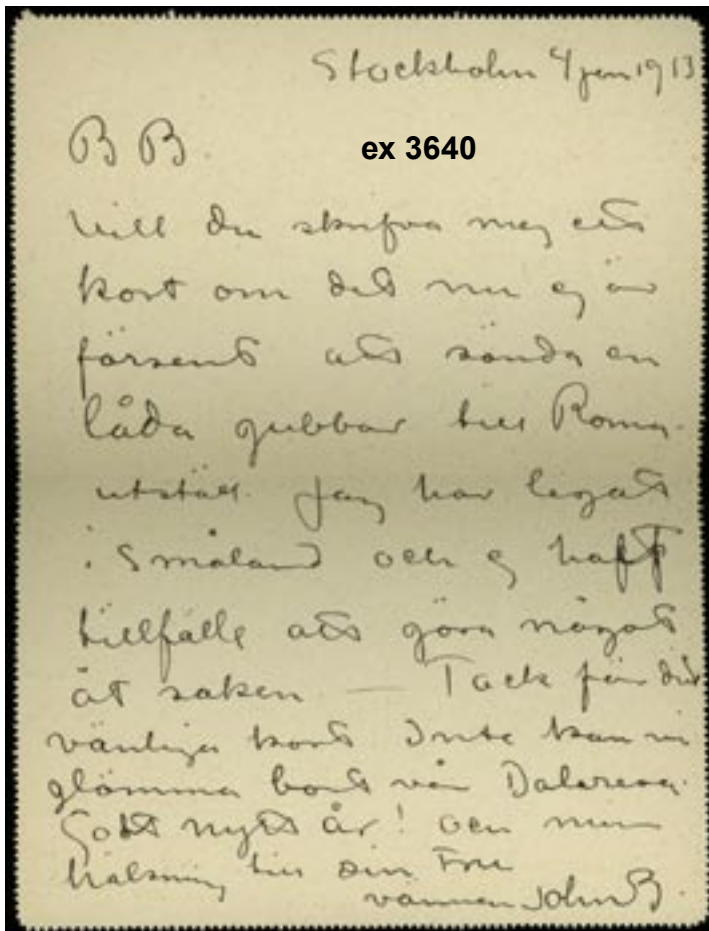 Stockholm 4 jan 1913
B B.
ex 3640
Vill du skrifva mig ett
kort om det nu ej är
försent att sända en
låda gubbar till Roma-
utställ. Jag har legat
i Småland och ej haft
tillfälle att göra något
åt saken — Tack för ditt
vänliga kort Inte kan vi
glömma bort vår Dalaresa.
Godt nytt år! och min
hälsning till din Fru
vännen John B.